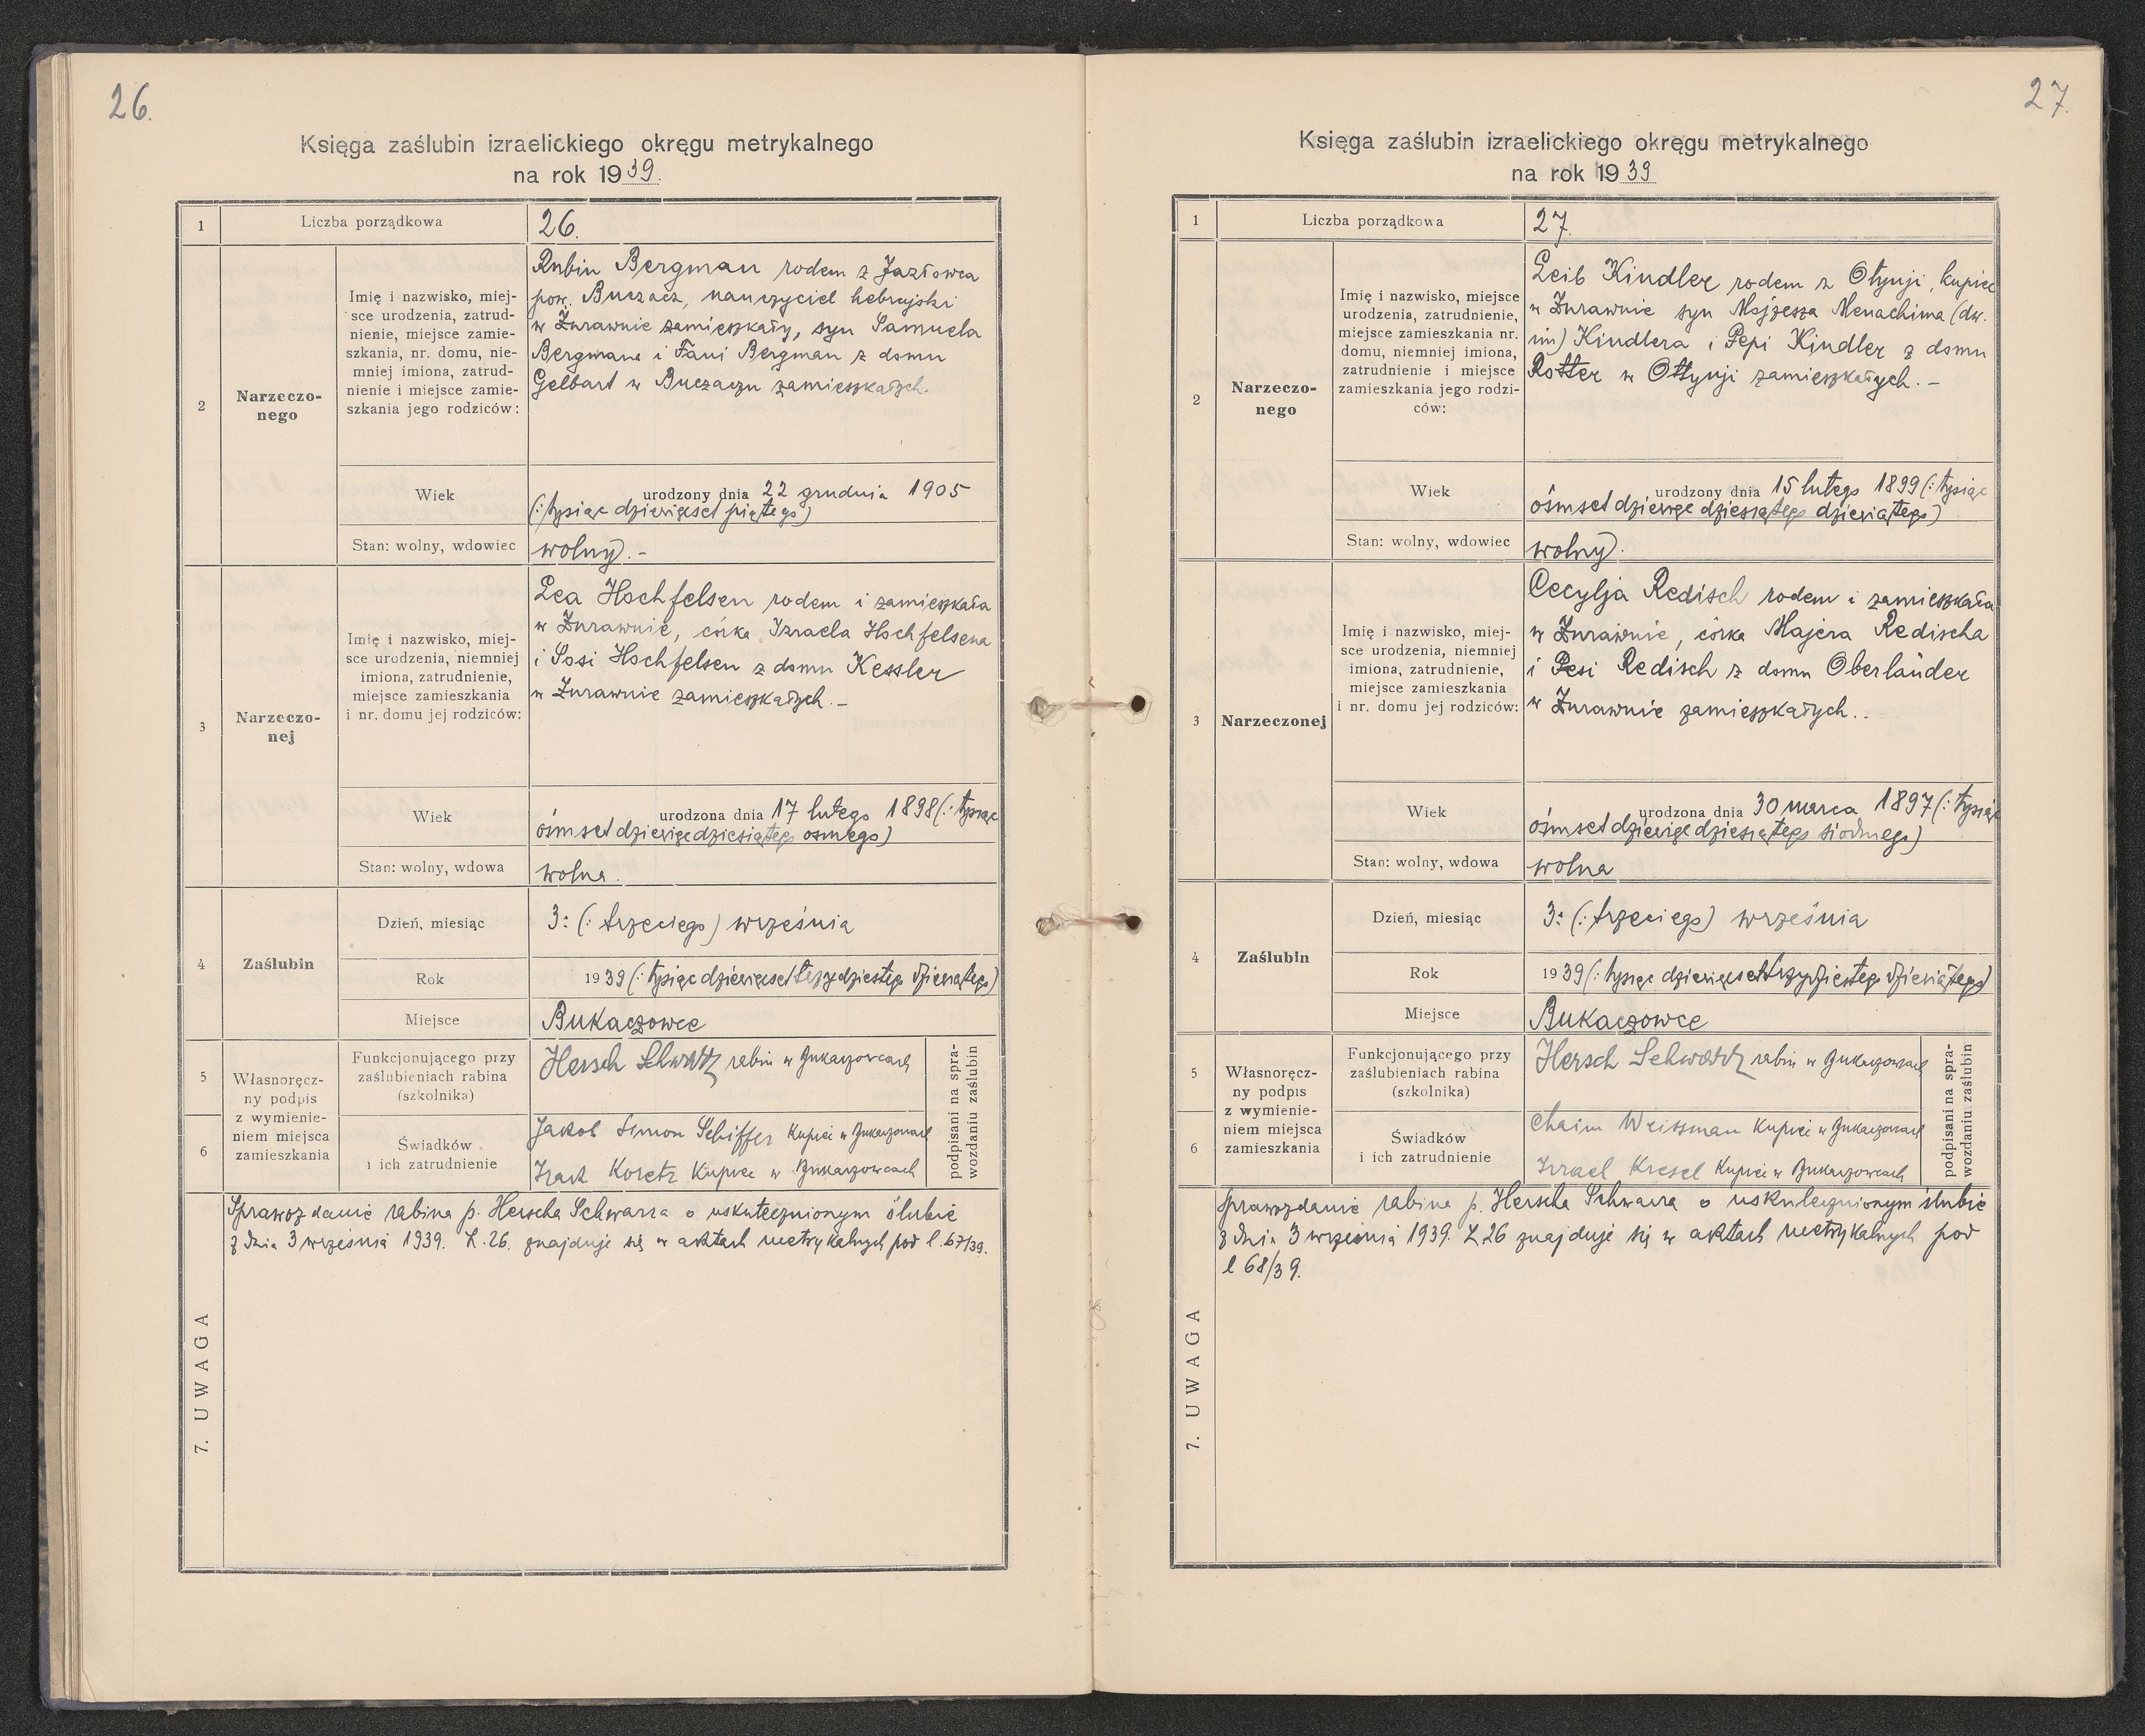 26.
Księga zaślubin izraelickiego okręgu metrykalnego
na rok 1939.
1
Liczba porządkowa
26.
2
Narzeczo-
nego
Imię i nazwisko, miej-
sce urodzenia, zatrud-
nienie, miejsce zamie-
szkania, nr. domu, nie-
mniej imiona, zatrud-
nienie i miejsce zamie-
szkania jego rodziców:
Rubin Bergman rodem z Jazłowca
pow. Buczacz, nauczyciel hebrajski
w Żurawnie zamieszkały, syn Samuela
Bergmana i Fani Bergman z domu
Gelbart w Buczaczu zamieszkałych.
Wiek
urodzony dnia 22 grudnia 1905
(: tysiąc dziewięćset piątego)
Stan: wolny, wdowiec
wolny. -
3
Narzeczo-
nej
Imię i nazwisko, miej-
sce urodzenia, niemniej
imiona, zatrudnienie,
miejsce zamieszkania
i nr. domu jej rodziców:
Lea Hochfelsen rodem i zamieszkała
w Żurawnie, córka Izraela Hochfelsena
i Sosi Hochfelsen z domu Kessler
w Żurawnie zamieszkałych. -
Wiek
urodzona dnia 17 lutego 1898 (: tysiąc
ośmset dziewięćdziesiątego osmego)
Stan: wolny, wdowa
wolna.
4
Zaślubin
Dzień, miesiąc
3: (: trzeciego) września
Rok
1939 (: tysiąc dziewięćset trzydziestego dziewiątego)
Miejsce
Bukaczowce
5
6
Własnoręcz-
ny podpis
z wymienie-
niem miejsca
zamieszkania
Funkcjonującego przy
zaślubieniach rabina
(szkolnika)
Hersch Schwarz rabin w Bukaczowcach
Świadków
i ich zatrudnienie
Jakob Simon Schiffer Kupiec w Bukaczowcach
Izak Koretz Kupiec w Bukaczowcach
podpisani na spra-
wozdaniu zaślubin
7. UWAGA
Sprawozdanie rabina p. Herscha Schwarza o uskutecznionym ślubie
z dnia 3 września 1939. L. 26. znajduje się w aktach metrykalnych pod l. 67/39.
27.
Księga zaślubin izraelickiego okręgu metrykalnego
na rok 1939
1
Liczba porządkowa
27.
2
Narzeczo-
nego
Imię i nazwisko, miejsce
urodzenia, zatrudnienie,
miejsce zamieszkania nr.
domu, niemniej imiona,
zatrudnienie i miejsce
zamieszkania jego rodzi-
ców:
Leib Kindler rodem z Otynji, kupiec
w Żurawnie syn Mojżesza Menachima (dw.
im) Kindlera i Pepi Kindler z domu
Rotter w Ottynji zamieszkałych. -
Wiek
urodzony dnia 15 lutego 1899 (: tysiąc
ośmset dziewięćdziesiątego dziewiątego)
Stan: wolny, wdowiec
wolny.
3
Narzeczonej
Imię i nazwisko, miej-
sce urodzenia, niemniej
imiona, zatrudnienie,
miejsce zamieszkania
i nr. domu jej rodziców:
Cecylja Redisch rodem i zamieszkała
w Żurawnie, córka Majera Redischa
i Pesi Redisch z domu Oberländer
w Żurawnie zamieszkałych..
Wiek
urodzona dnia 30 marca 1897 (: tysiąc
ośmset dziewięćdziesiątego siódmego)
Stan: wolny, wdowa
wolna
4
Zaślubin
Dzień, miesiąc
3: (: trzeciego) września
Rok
1939 (: tysiąc dziewięćset trzydziestego dziewiątego)
Miejsce
Bukaczowce
5
6
Własnoręcz-
ny podpis
z wymienie-
niem miejsca
zamieszkania
Funkcjonującego przy
zaślubieniach rabina
(szkolnika)
Hersch Schwarz rabin w Bukaczowcach
Świadków
i ich zatrudnienie
Chaim Weissman Kupiec w Bukaczowcach
Israel Kresel Kupiec w Bukaczowcach
podpisani na spra-
wozdaniu zaślubin
7. UWAGA
Sprawozdanie rabina p. Herscha Schwarza o uskutecznionym ślubie
z dnia 3 września 1939. L 26 znajduje się w aktach metrykalnych pod
l 68/39.